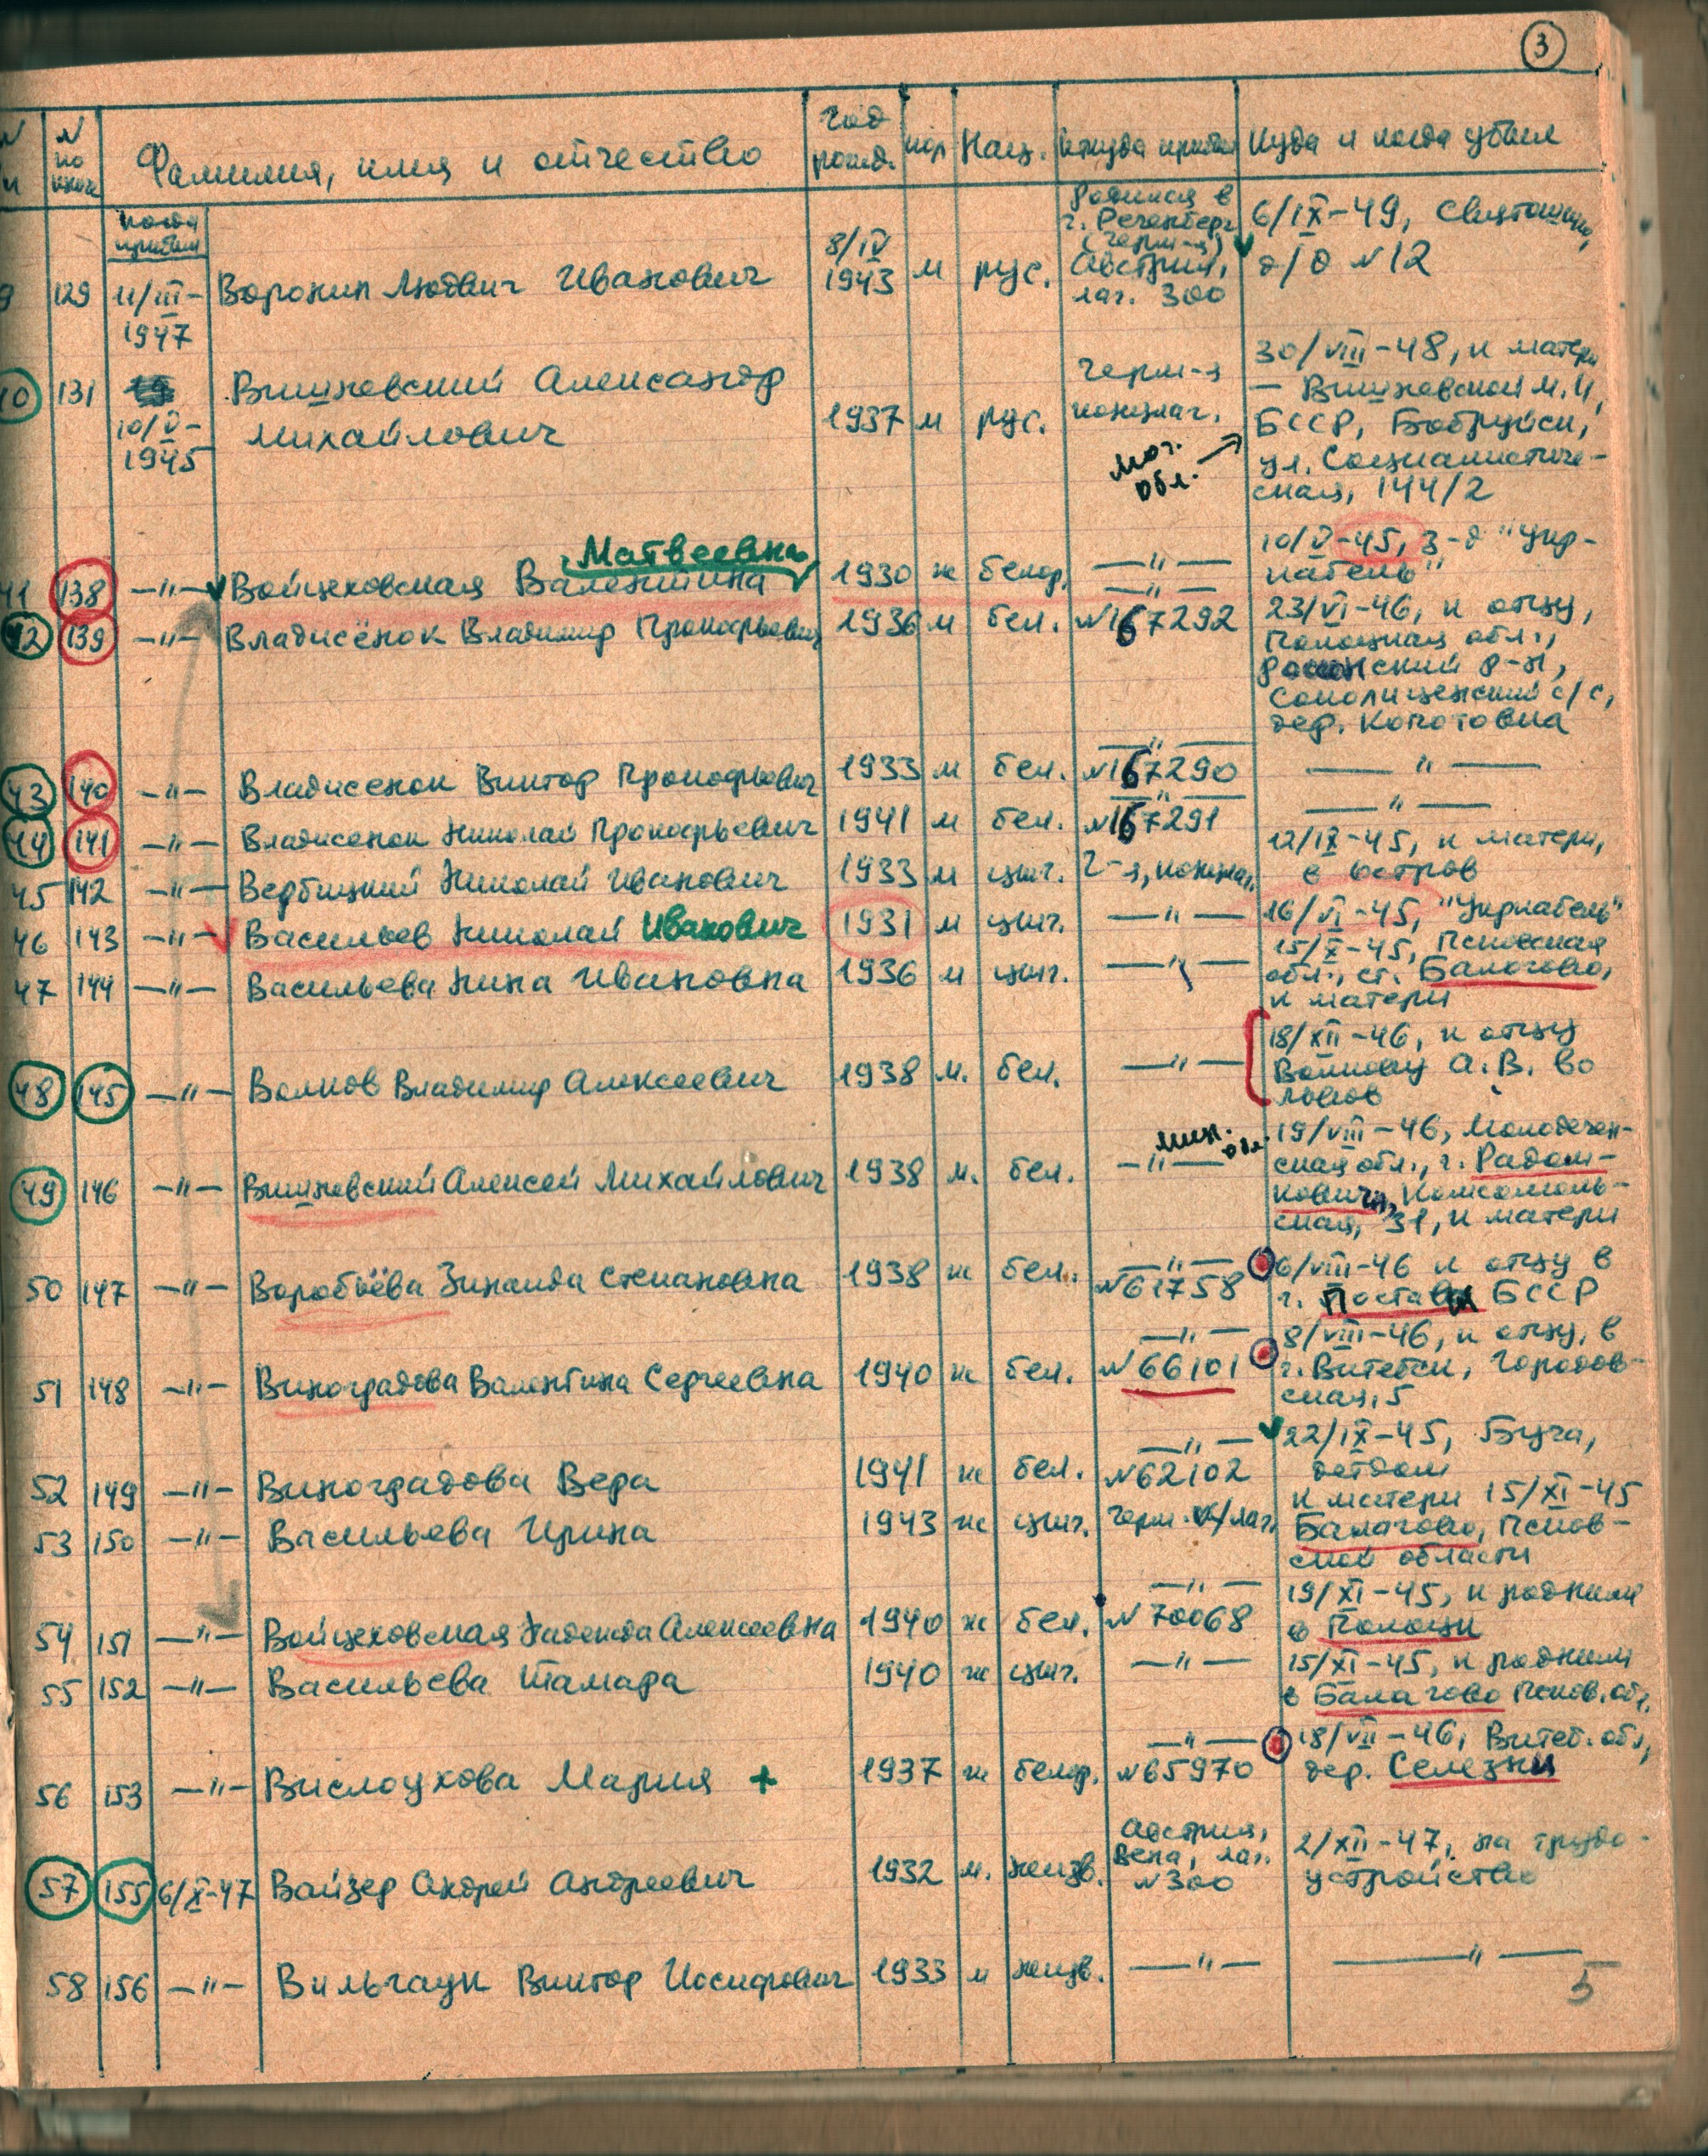 3
N
N по книге
Фамилия, имя и отчество
Год рожд.
пол
Нац.
Откуда прибыл
Куда и когда убыл
когда прибыл
9 129 11/III-1947 Воронин Людвиг Иванович 8/IV 1943 м рус. Родился в г. Регенсберг (Герм-я) Австрия, лаг. 300 6/IX-49, Святошино, д/д N12
10 131 10/V-1945 Вишневский Александр Михайлович 1937 м рус. Герм-я концлаг. 30/VIII-48, к матери
— Вишневской М.И,
БССР, Бобруйск,
мог. обл. →
ул. Социалистиче-
ская, 144/2
Матвеевна
41 138 —"— Войцеховская Валентина 1930 ж белор. —"— 10/V-45, з-д "Укр-
кабель"
42 139 —"— Владисёнок Владимир Прокофьевич 1936 м бел. —"— N167292 23/VI-46, к отцу,
Полоцкая обл.,
Россонский р-н,
Соколищенский с/с,
дер. Копотовка
43 140 —"— Владисенок Виктор Прокофьевич 1933 м бел. —"— N167290 —"—
44 141 —"— Владисенок Николай Прокофьевич 1941 м бел. —"— N167291 —"—
45 142 —"— Вербицкий Николай Иванович 1933 м цыг. Г-я, концлаг. 12/IX-45, к матери,
в Остров
46 143 —"— Васильев Николай Иванович 1931 м цыг. —"— 16/VI-45, "Укркабель"
47 144 —"— Васильева Нина Ивановна 1936 м цыг. —"— 15/X-45, Псковская
обл., ст. Балогово,
к матери
48 145 —"— Волков Владимир Алексеевич 1938 м. бел. —"— 18/XII-46, к отцу
Волкову А.В. во
Львов
49 146 —"— Вишневский Алексей Михайлович 1938 м. бел. —"— мин. обл. 19/VIII-46, Молодечен-
ская обл., г. Радош-
ковичи, Комсомоль-
ская, 31, к матери
50 147 —"— Воробьёва Зинаида Степановна 1938 ж бел. —"— N61758 6/VIII-46 к отцу в
г. Поставы БССР
51 148 —"— Виноградова Валентина Сергеевна 1940 ж бел. —"— N66101 8/VIII-46, к отцу, в
г. Витебск, Городов-
ская, 5
52 149 —"— Виноградова Вера 1941 ж бел. —"— N62102 22/IX-45, Буча,
детдом
53 150 —"— Васильева Ирина 1943 ж цыг. Герм. к/лаг. к матери 15/XI-45
Балагово, Псков-
ской области
54 151 —"— Войцеховская Надежда Алексеевна 1940 ж бел. —"— N70068 19/XI-45, к родным
в Полоцк
55 152 —"— Васильева Тамара 1940 ж цыг. —"— 15/XI-45, к родным
в Балагово Псков. обл.
56 153 —"— Вислоухова Мария + 1937 ж белор. —"— N65970 18/VII-46, Витеб. обл.,
дер. Селезни
57 155 6/X-47 Вайзер Андрей Андреевич 1932 м. неизв. Австрия, Вена, лаг. N300 2/XII-47, на трудо-
устройство
58 156 —"— Вильгаук Виктор Иосифович 1933 м неизв. —"— —"—
5